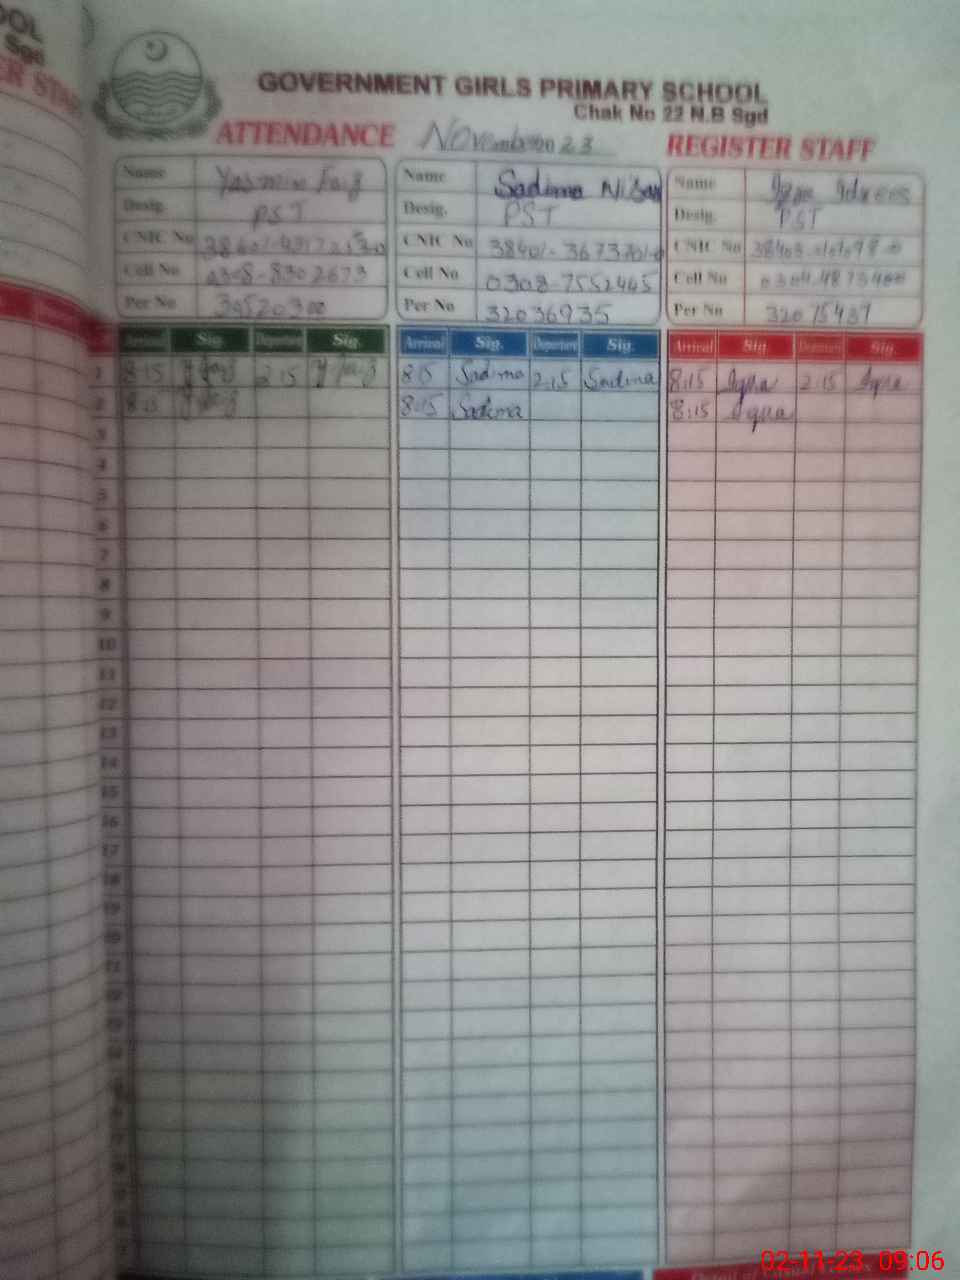 OOL
Sgd
ER STA
GOVERNMENT GIRLS PRIMARY SCHOOL
Chak No 22 N.B Sgd
ATTENDANCE November 2023 REGISTER STAFF
Name Yasmin Faiz
Desig. PST
CNIC No
Cell No 0308-8302673
Per No
Name Sadima
Desig. PST
CNIC No
Cell No 0308-7552445
Per No 32036935
Name Iqra Idrees
Desig. PST
CNIC No
Cell No
Per No 32075437
Arrival Sig. Departure Sig. Arrival Sig. Departure Sig. Arrival Sig. Departure Sig.
1 8:15 Y Faiz 2:15 Y Faiz 8:15 Sadima 2:15 Sadima 8:15 Iqra 2:15 Iqra
2 8:15 Y Faiz 8:15 Sadima 8:15 Iqra
3
4
5
6
7
8
9
10
11
12
13
14
15
16
17
18
19
20
21
02-11-23 09:06